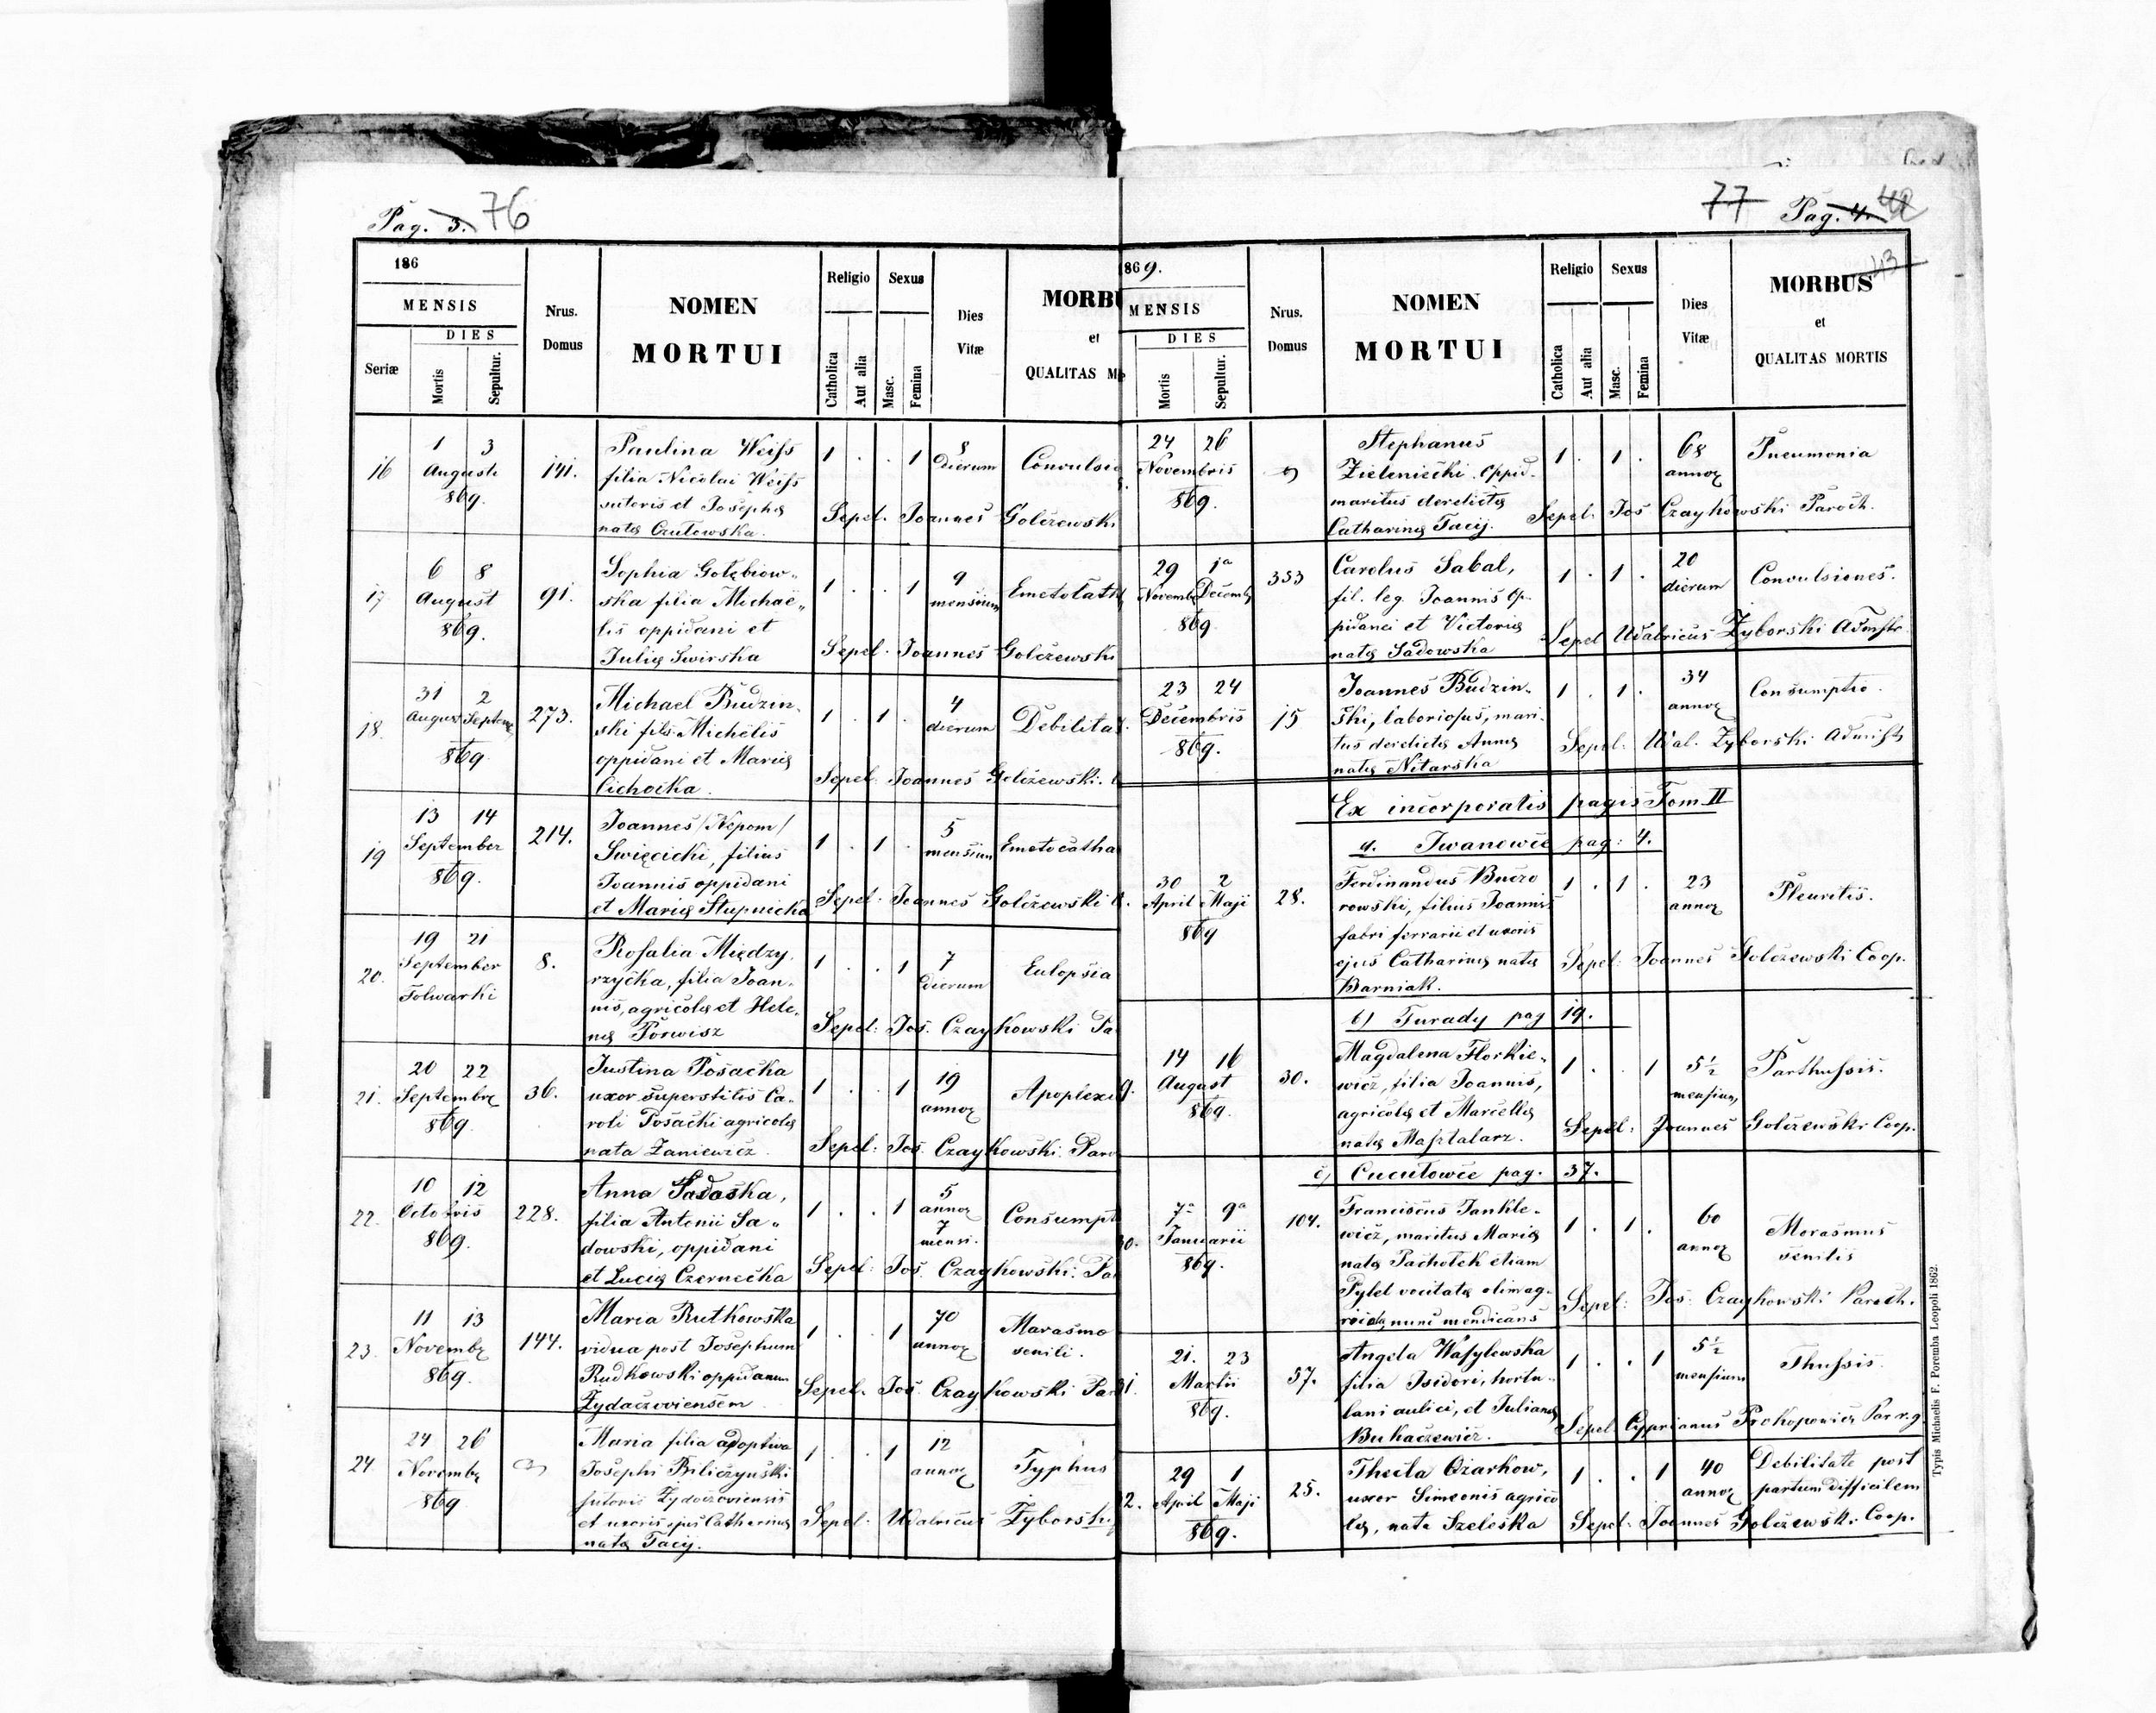 Pag. 3. 76
186
MENSIS
DIES
Seriæ
Mortis
Sepultur.
Nrus.
Domus
NOMEN
MORTUI
Religio
Catholica
Aut alia
Sexus
Masc.
Femina
Dies
Vitæ
MORBU
et
QUALITAS M
16
1 3
Augusti
869.
141.
Paulina Weiss
filia Nicolai Weiss
sutoris et Josephæ
natæ Czutowska.
1 . . 1
8
dierum
Convulsio
Sepel. Joannes Golczewski
17
6 8
August
869.
91.
Sophia Gołębiow„
ska filia Michaë„
lis oppidani et
Juliæ Swirska
1 . . 1
9
mensium
Emetocath
Sepel. Joannes Golczewski
18.
31 2
August Septemb
869
273.
Michael Budzin„
ski fils Michëlis
oppidani et Mariæ
Cichocka.
1 . 1 .
4
dierum
Debilita
Sepel: Joannes Golczewski.
19
13 14
September
869.
214.
Joannes /Nepom/
Swięcicki, filius
Joannis oppidani
et Mariæ Stupnicka
1 . 1 .
5
mensium
Emetocatha
Sepel. Joannes Golczewski
20.
19 21
September
Folwarki
8.
Rosalia Między„
rzycka, filia Joan„
nis, agricolæ et Hele„
næ Porwisz
1 . . 1
7
dierum
Eulopsia
Sepel: Jos. Czaykowski Pa
21.
20 22
Septembr
869
36.
Justina Posacka
uxor superstitis Ca„
roli Posacki agricolæ
nata Zaniewicz.
1 . . 1
19
annor
Apoplexi
Sepel: Jos. Czaykowski. Paro
22.
10 12
Octobris
869.
228.
Anna Sadoska,
filia Antonii Sa„
dowski, oppidani
et Luciæ Czernecka
1 . . 1
5
annor
7
mensi.
Consumpt
Sepel: Jos. Czaykowski. Pa
23.
11 13
Novembr
869.
144.
Maria Rutkowska
vidua post Josephum
Rudkowski oppidanum
Zydaczoviensem
1 . . 1
70
annor
Marasmo
senili.
Sepel. Jos. Czaykowski Pa
24.
24 26
Novembr
869
Maria filia adoptiva
Josephi Biliczynski
sutoris Zydaczoviensis
et uxoris ejus Catharinæ
natæ Tacij.
1 . . 1
12
annor
Typhus
Sepel. Udalricus Zyborski
77 Pag. 4. 42
43
869.
MENSIS
DIES
Mortis
Sepultur.
Nrus.
Domus
NOMEN
MORTUI
Religio
Catholica
Aut alia
Sexus
Masc.
Femina
Dies
Vitæ
MORBUS
et
QUALITAS MORTIS
24 26
Novembris
869.
Stephanus
Zieleniecki. Oppid.
maritus derelictæ
Catharinæ Tacij.
1 . 1 .
68
annor
Pneumonia
Sepel. Jos Czaykowski Paroch.
29 1a
Novemb Decemb
869
353
Carolus Sabal,
fil. leg. Joannis Op„
pidanei et Victoriæ
natæ Sadowska
1 . 1 .
20
dierum
Convulsiones.
Sepel Udalricus Zyborski Admstr.
23 24
Decembris
869.
15
Joannes Budzin„
ski, laboriosus, mari„
tus derelictæ Annæ
natæ Nitarska
1 . 1 .
34
annor
Consumptio.
Sepel. Udal. Zyborski Admistr
Ex incorporatis pagis Tom II
a. Iwanowce pag: 4.
30 2
April Maji
869
28.
Ferdinandus Buczo
rowski, filius Joannis
fabri ferrarii et uxoris
ejus Catharinæ natæ
Barniak.
1 . 1 .
23
annor
Pleuritis.
Sepel. Joannes Golczewski Coop.
b) Turady pag 19.
9.
14 16
August
869.
30.
Magdalena Florkie„
wicz, filia Joannis,
agricolæ et Marcellæ
natæ Masztalarz.
1 . . 1
5½
mensium
Parthussis.
Sepel: Joannes Golczewski Coop.
c) Cucułowce pag. 37.
30.
7a 9a
Januarii
869.
104.
Franciscus Jankle„
wicz, maritus Mariæ
natæ Pachołek etiam
Pylet vocitatæ olim ag„
ricola, nunc mendicans
1 . 1 .
60
annor
Morasmus
senilis
Sepel: Jos. Czaykowski Paroch.
31.
21. 23
Martii
869.
57.
Angela Wasylewska
filia Isidori, hortu„
lani aulici, et Julianæ
Bukaczewicz.
1 . . 1
5½
mensium
Thussis.
Sepel. Cyprianus Prokopowicz Par r.g.
32.
29 1
April Maji
869.
25.
Thecla Ożarkow,
uxor Simeonis agrico
læ, nata Szeleska
1 . . 1
40
annor
Debilitate post
partum difficilem
Sepel. Joannes Golczewski Coop.
Typis Michaelis F. Poremba Leopoli 1862.